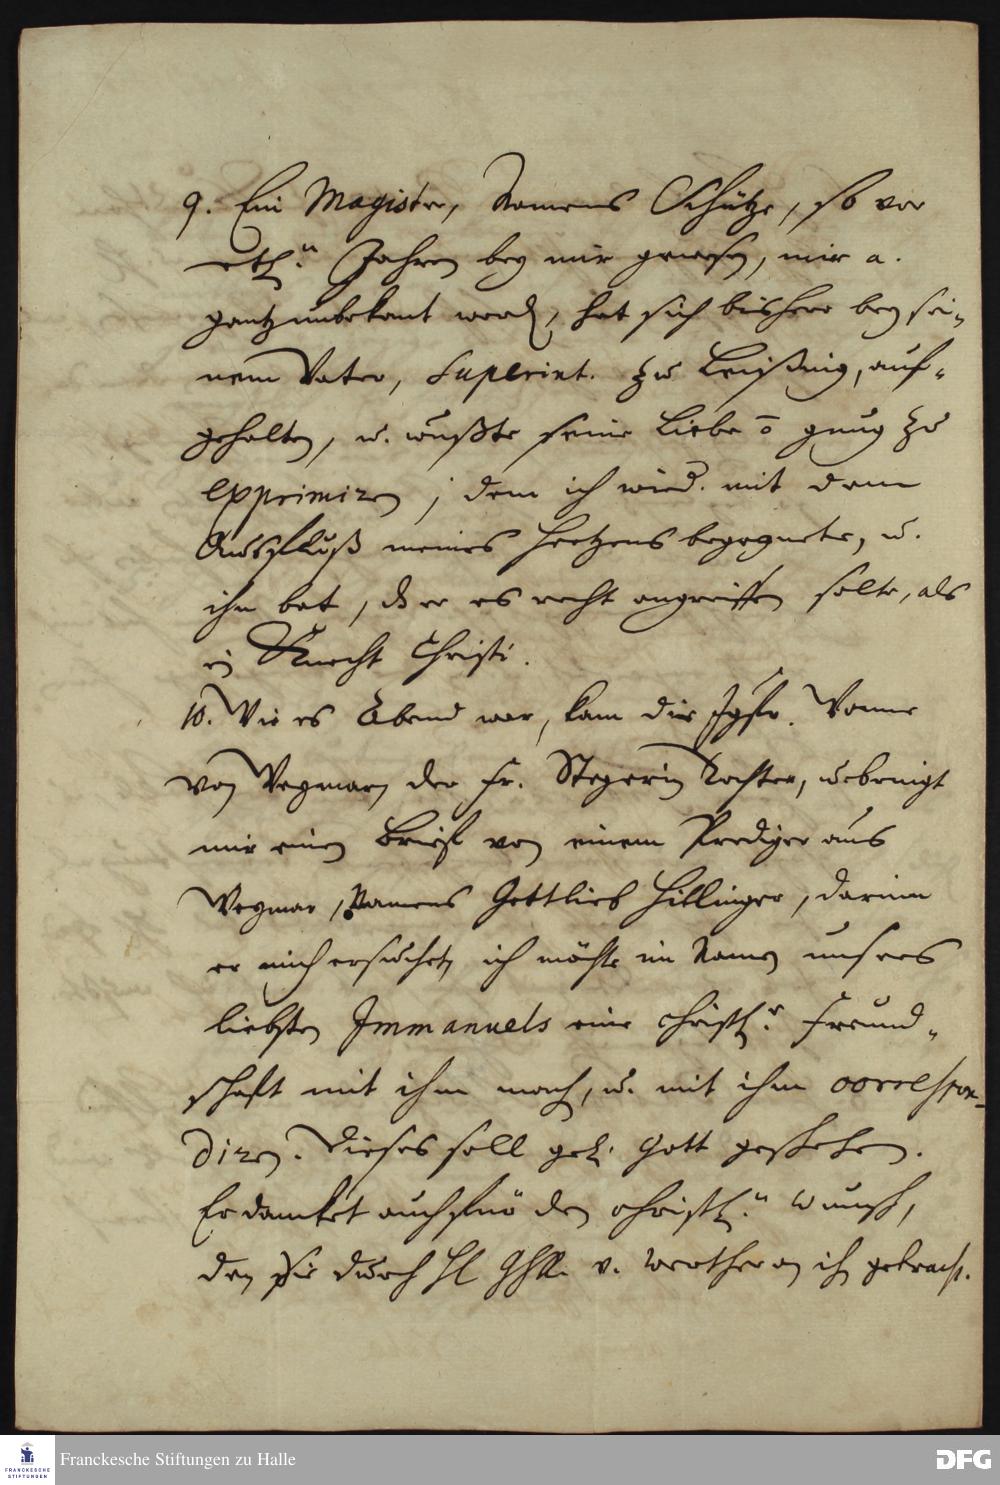 9. Ein Magister, Namens Schütze, so vor
etl.n Jahren bey mir gewesen, mir a.
gantz unbekant word, hat sich bisher bey sei-
nem Vater, Superint. zu Leißnig, auf-
gehalten, u. wußte seine Liebe õ gnug zu
exprimiren; dem ich wied. mit dem
Ausfluß meines Hertzens begegnete, u.
ihn bat, dß er es recht angreiffen solte, als
ein Knecht Christi.
10. Wie es Abend war, kam die Jgfr.
von Weymar, der Fr. Stegerin Tochter, u.
mir einen Brief von einem Prediger aus
Weymar, Namens Gottlieb Hillinger, darinn
er mich ersuchet, ich möchte im Namen unsers
liebsten Immanuels eine christl.e Freund-
schafft mit ihm mach, u. mit ihm correspon-
diren. Dieses soll gel. Gott geschehen.
Er dancket auch für den christl.n Wunsch,
den Sie durch v. Werthern an ihn gebracht.
Franckesche Stiftungen zu Halle
FRANCKESCHE
STIFTUNGEN
DFG